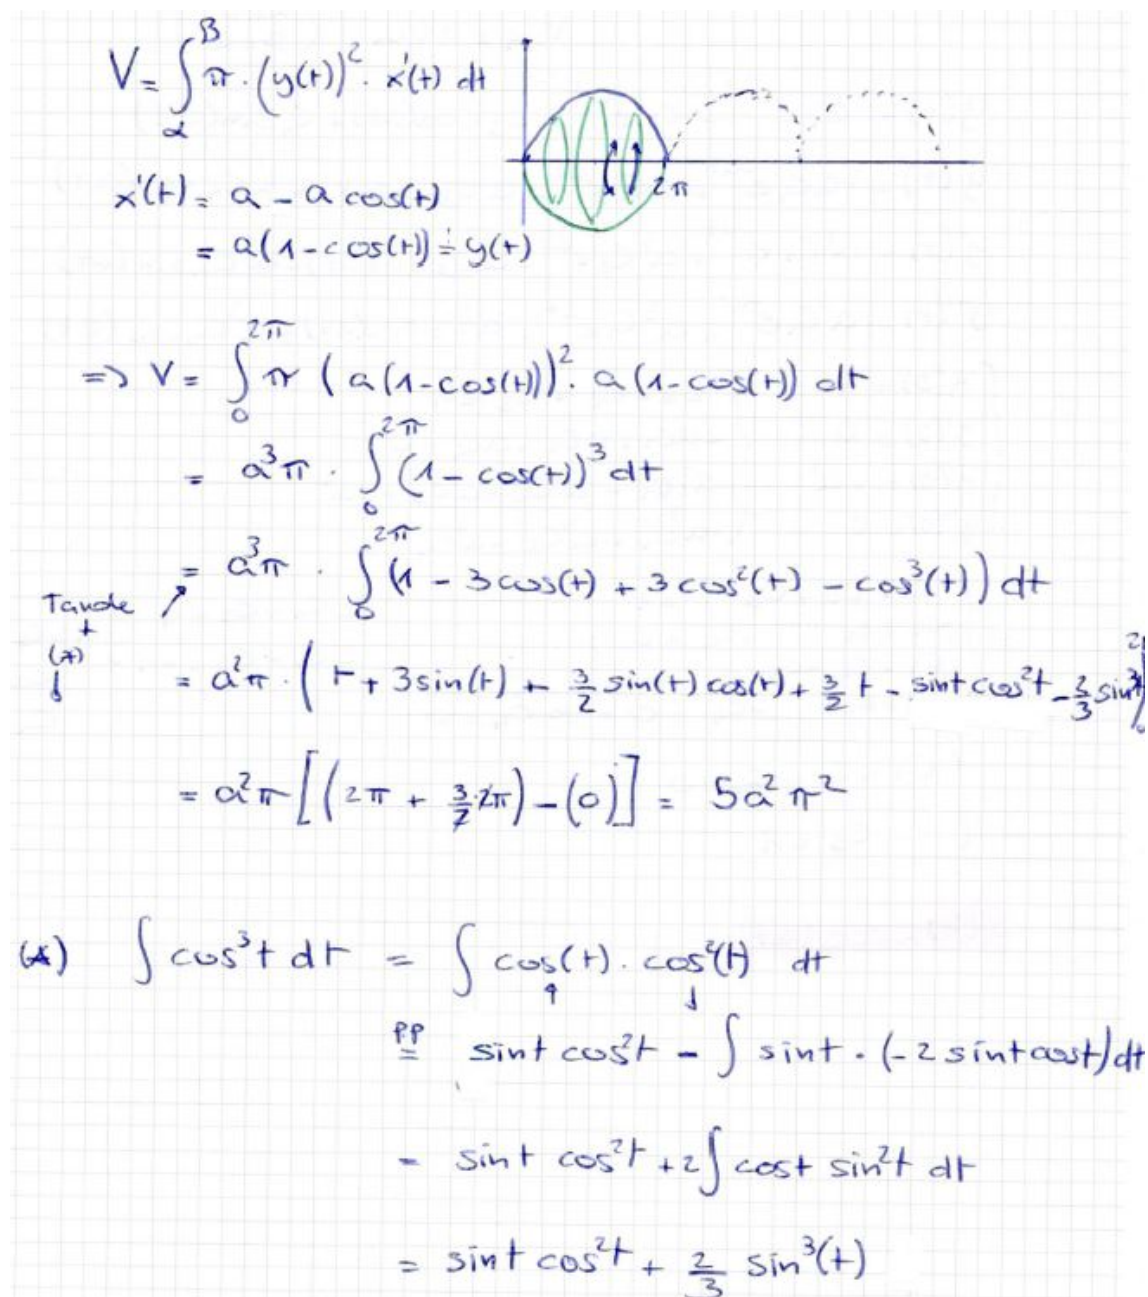 V = ∫_α^β π · (y(t))² · x'(t) dt
2π
x'(t) = a - a cos(t)
= a(1-cos(t)) = y(t)
=> V = ∫_0^{2π} π (a(1-cos(t)))² · a(1-cos(t)) dt
= a³π · ∫_0^{2π} (1 - cos(t))³ dt
= a³π · ∫_0^{2π} (1 - 3cos(t) + 3cos²(t) - cos³(t)) dt
+
(*)
= a²π · (t + 3sin(t) + 3/2 sin(t) cos(t) + 3/2 t - sint cos²t - 2/3 sin³t)|_0^{2π}
= a²π [(2π + 3/2·2π) - (0)] = 5a²π²
(*) ∫ cos³t dt = ∫ cos(t) · cos²(t) dt
PP
= sint cos²t - ∫ sint · (-2 sint cost) dt
= sint cos²t + 2∫ cost sin²t dt
= sint cos²t + 2/3 sin³(t)